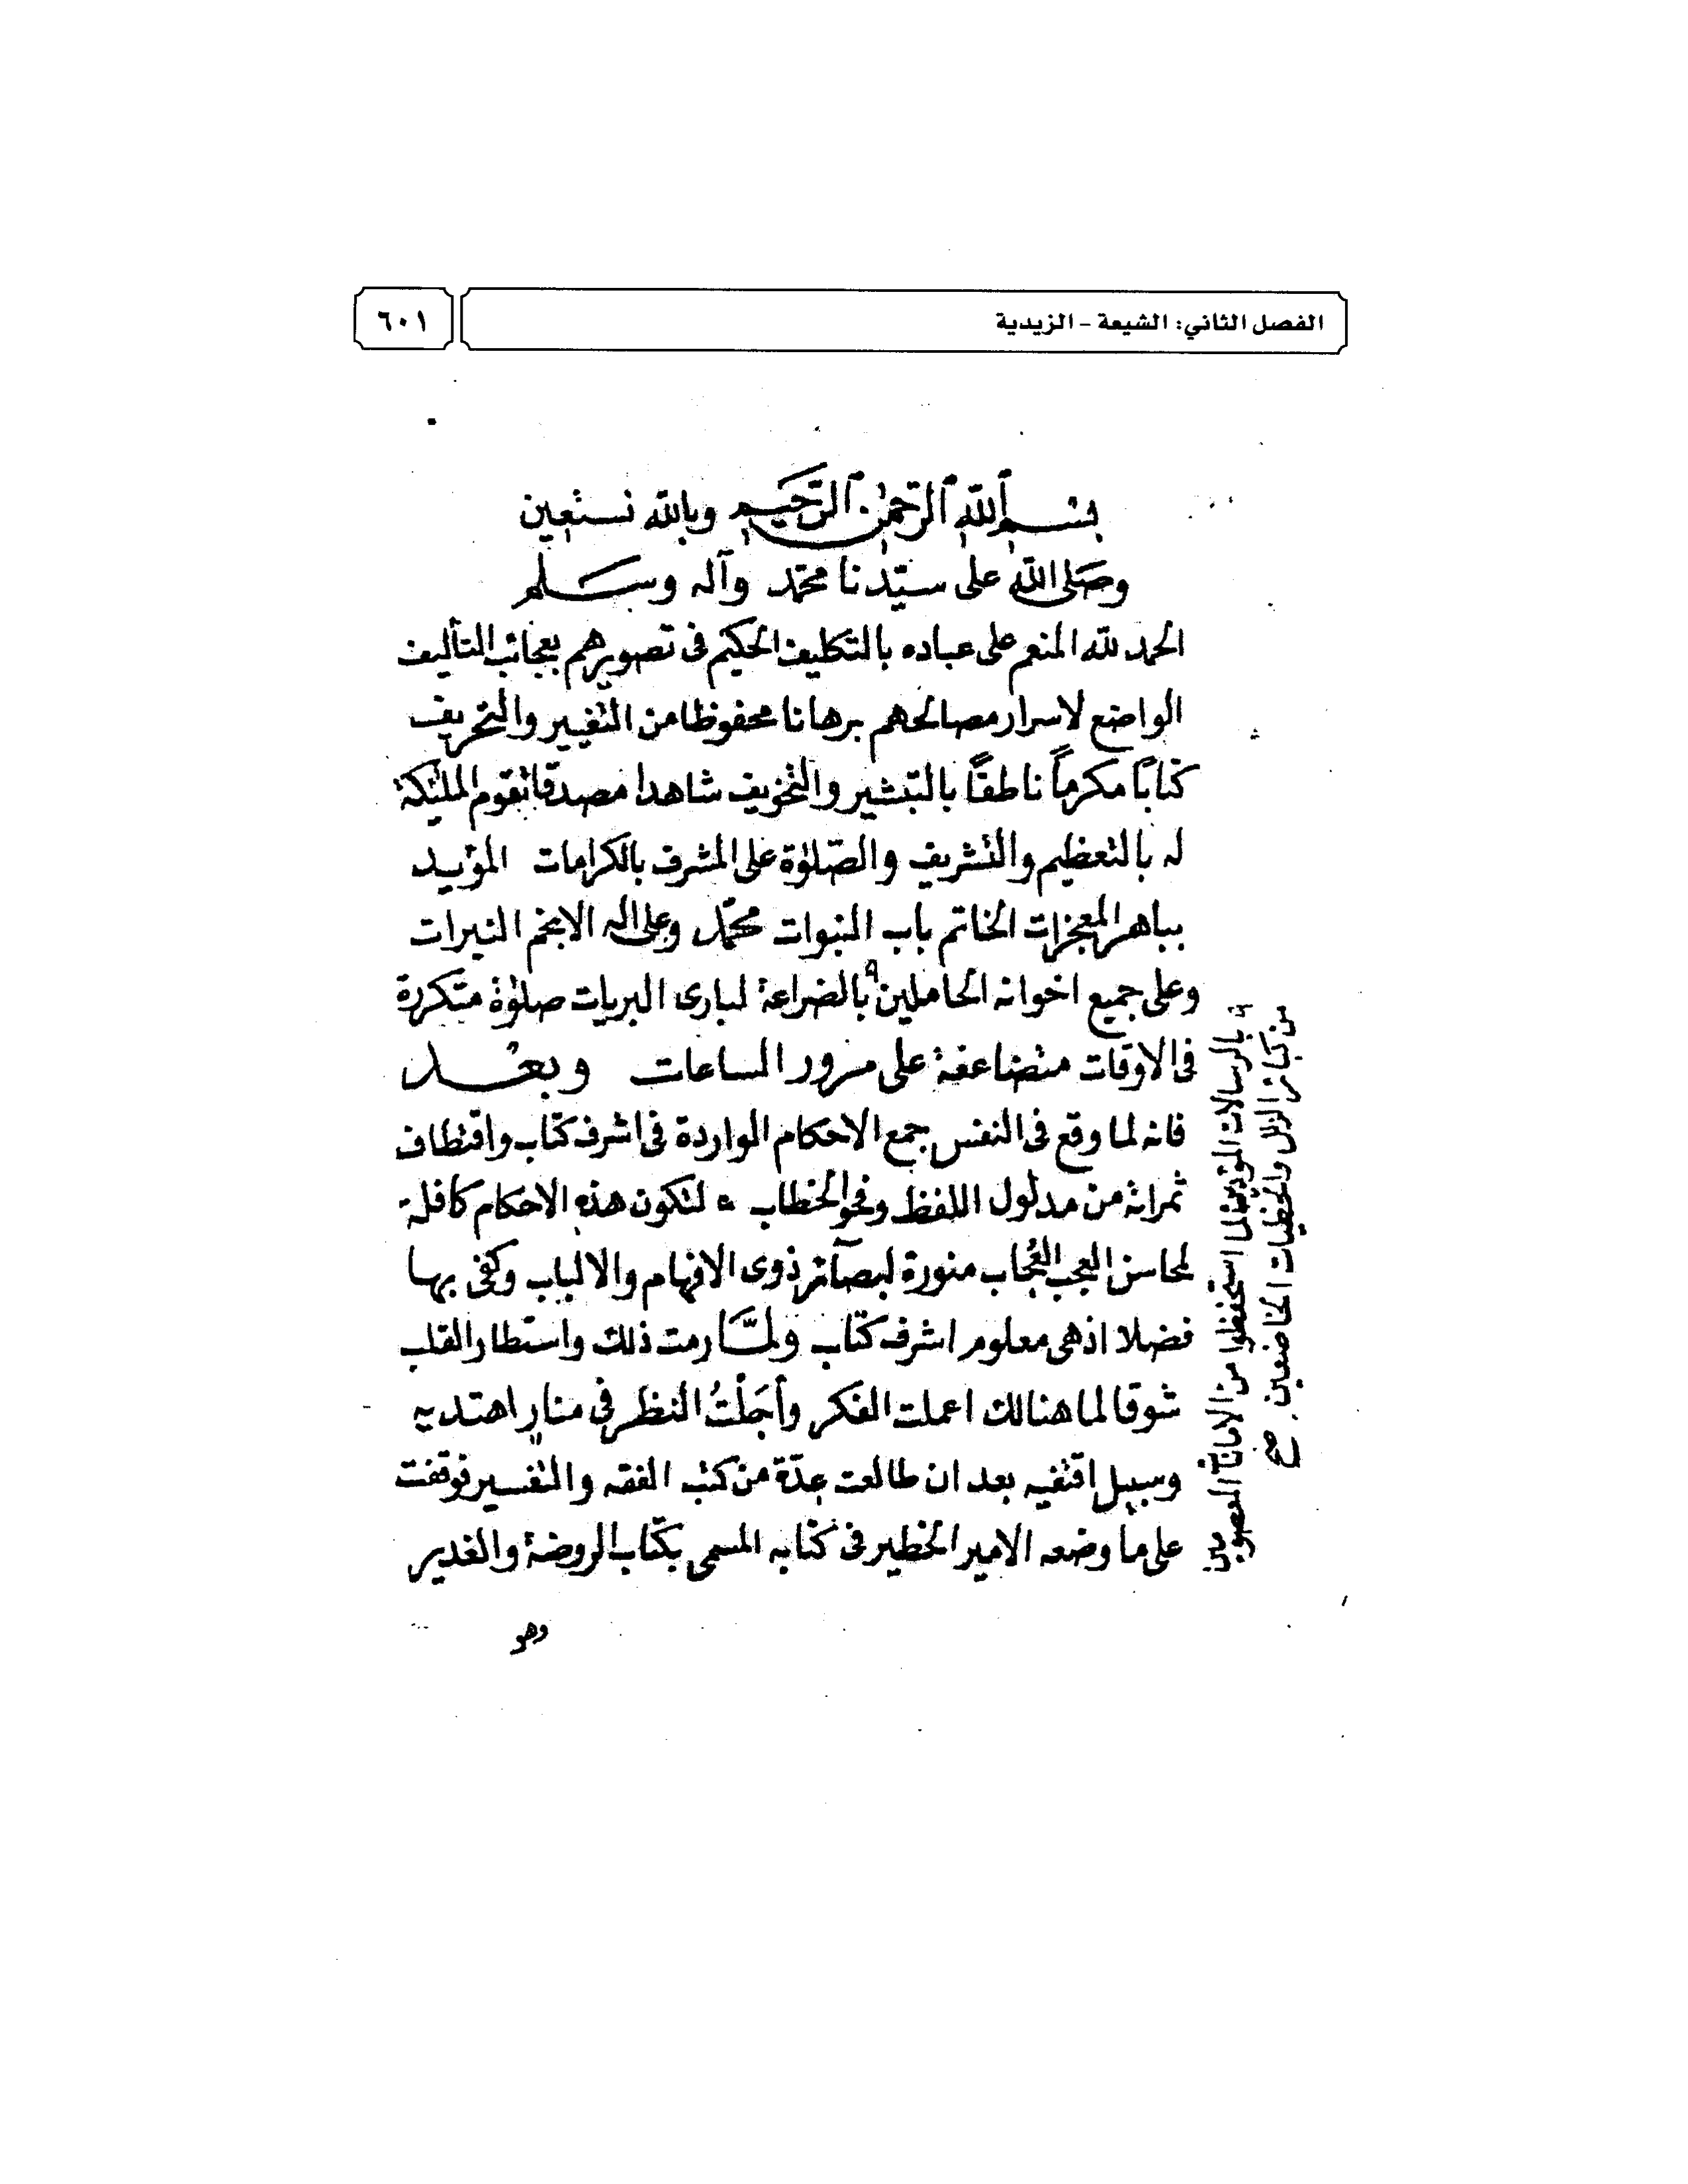 الفصل الثاني: الشيعة - الزيدية
٦٠١
بسم الله الرحمن الرحيم وبالله نستعين
وصلى الله على سيدنا محمد وآله وسلم
الحمد لله المنعم على عباده بالتكليف الحكيم فى تصويرهم بعجائب التأليف
الواضع لاسرار مصالحهم برهانا محفوظا من التغيير والتحريف
كتابًا مكرماً ناطقًا بالتبشير والتخويف شاهدا مصدقا تقوم الملئكة
له بالتعظيم والتشريف والصلوة على المشرف بالكرامات المؤيد
بباهر المعجزات الخاتم باب النبوات محمد وعلى اله الانجم النيرات
وعلى جميع اخوانه الحاملين بالضراعة لبارى البريات صلوة متكررة
فى الاوقات متضاعفة على مرور الساعات وبعد
فانه لما وقع فى النفس جمع الاحكام الواردة فى اشرف كتاب واقتطاف
ثمراته من مدلول اللفظ وفحو الخطاب ه لتكون هذه الاحكام كافلة
لمحاسن العجب العُجاب منورة لبصآئر ذوى الافهام والالباب وكفى بها
فضلا اذ هى معلوم اشرف كتاب ولمَّا رمت ذلك واستطار القلب
شوقا لما هنالك اعملت الفكر وأجَلْتُ النظر فى منار اهتدى به
وسبيل اقتفيه بعد ان طالعت عدّة من كتب الفقه والتفسير فوقفت
على ما وضعه الامير الخطير فى كتابه المسمى بكتاب الروضة والغدير
وهو
بالرسالات المؤدين لما استحفظوا من الامانات المعصومين
من كبائر الزلل والخطيات الخاضعين صح